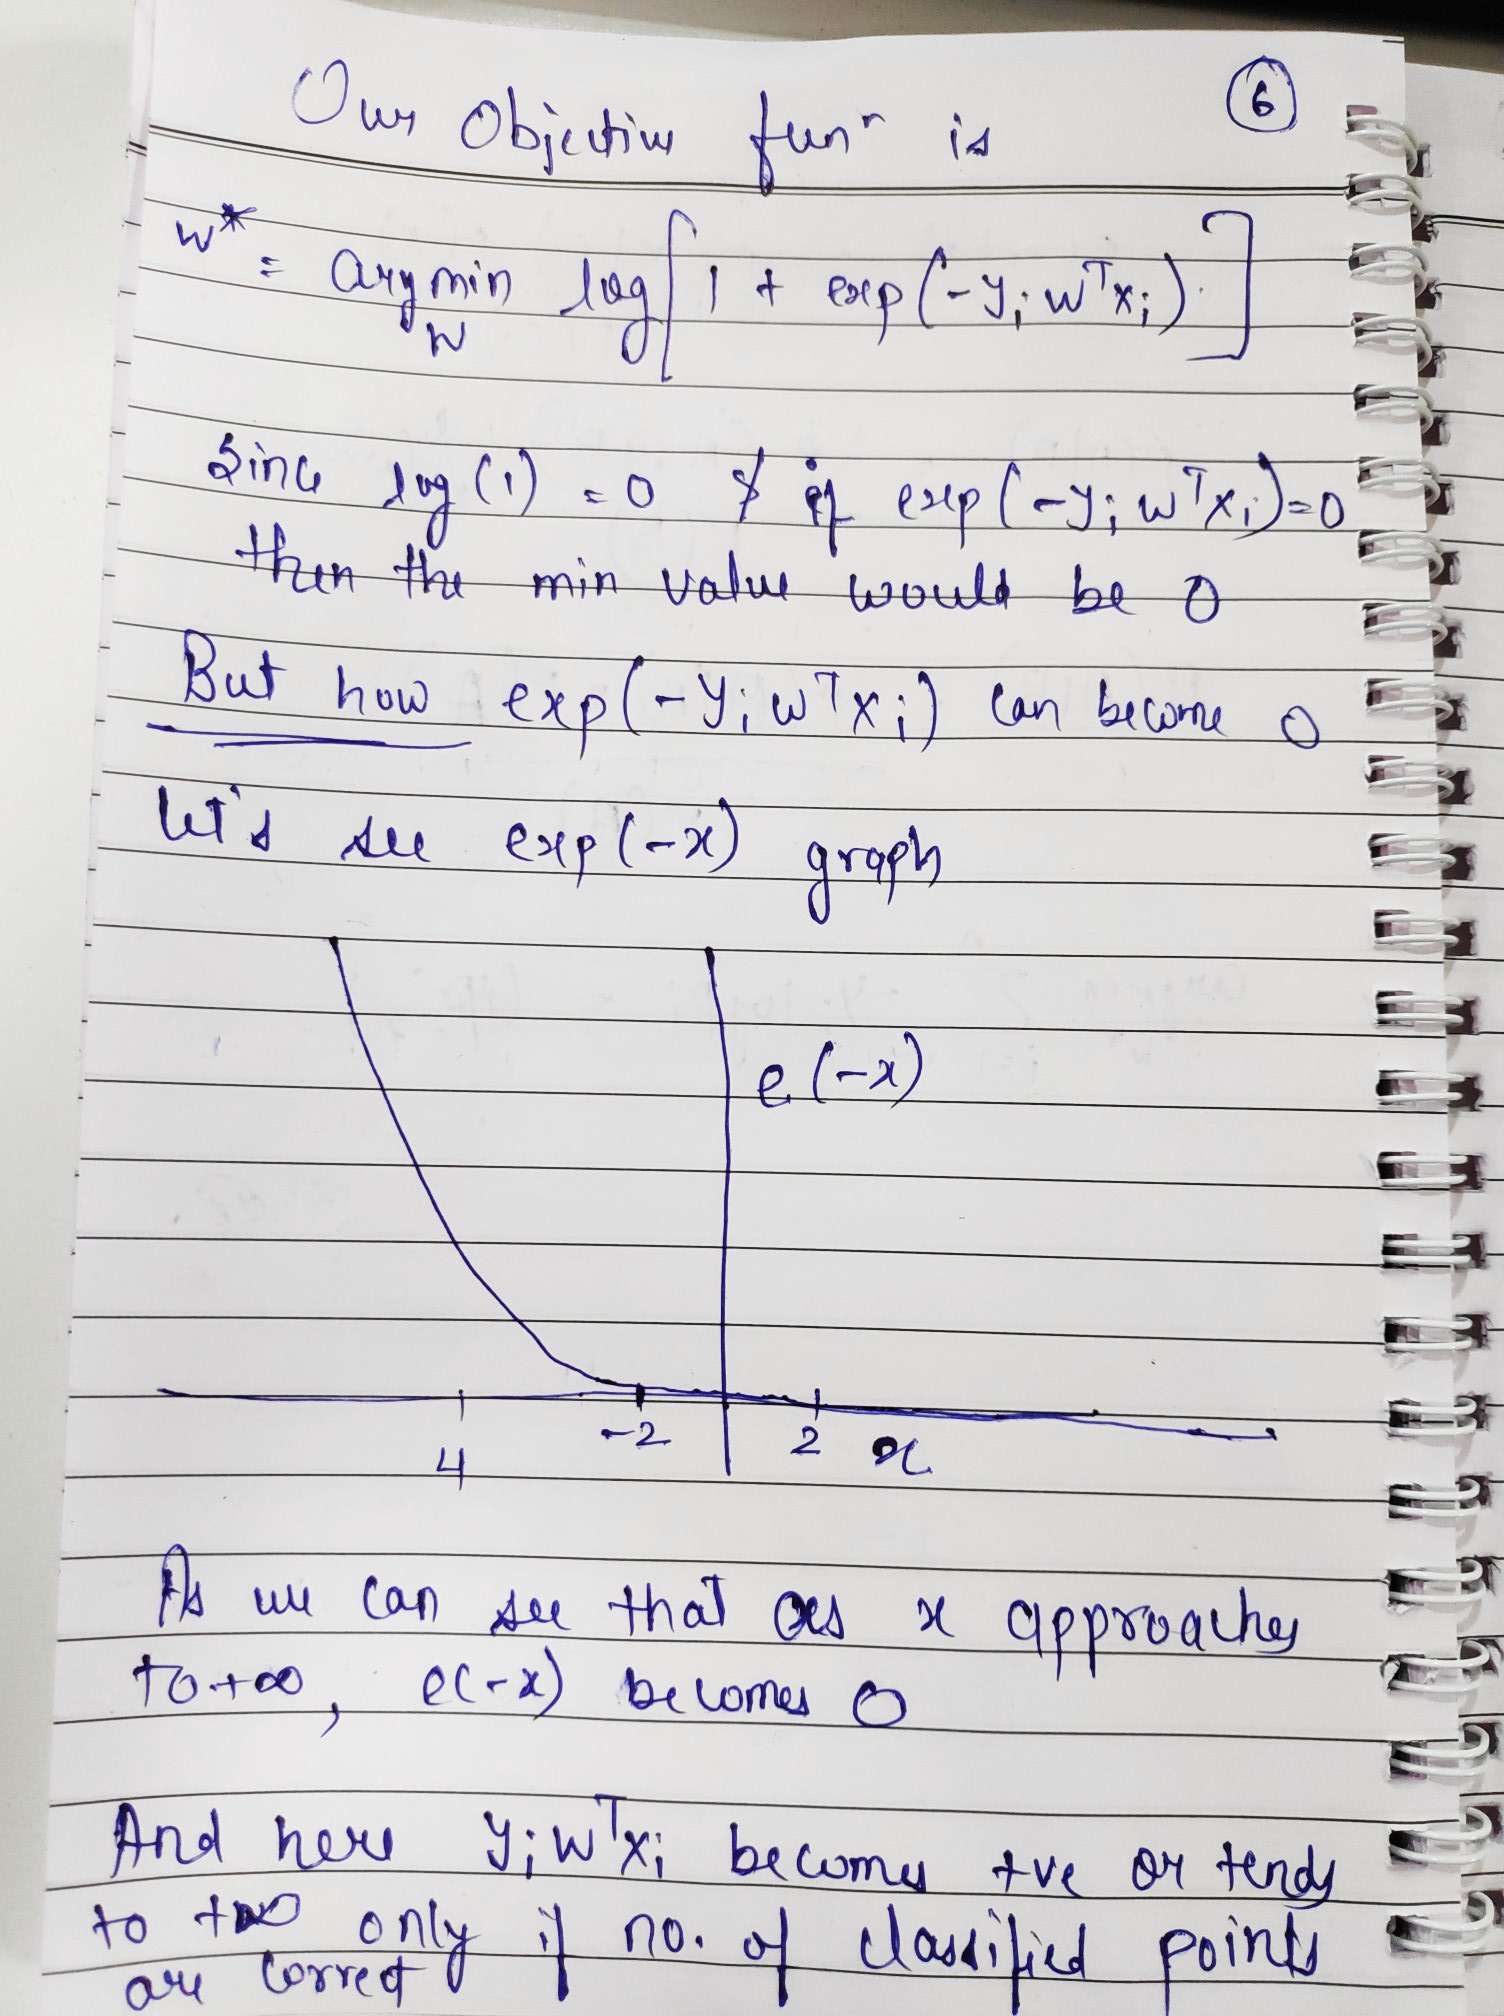 Our Objective funⁿ is 6
w* = argmin log[1 + exp(-yᵢ wᵀxᵢ)]
w
Since log(1) = 0 & if exp(-yᵢ wᵀxᵢ)=0
then the min value would be 0
But how exp(-yᵢ wᵀxᵢ) can become 0
let's see exp(-x) graph
e(-x)
4 -2 2 x
As we can see that as x approaches
to +∞, e(-x) becomes 0
And here yᵢwᵀxᵢ becomes +ve or tends
to +∞ only if no. of classified points
are correct